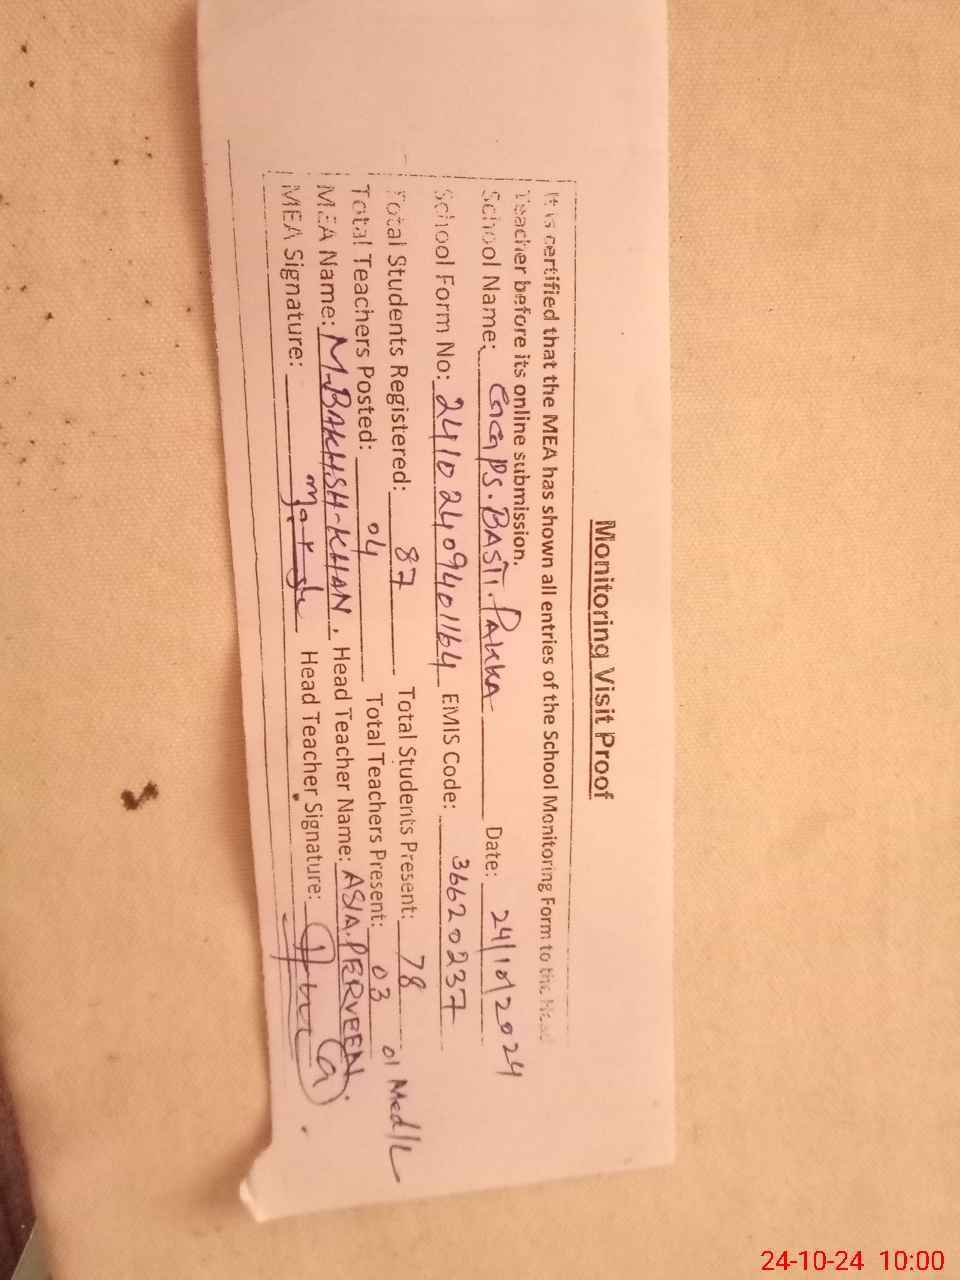 Monitoring Visit Proof
It is certified that the MEA has shown all entries of the School Monitoring Form to the Head
Teacher before its online submission.
School Name: GGPS. BASTI. PAKKA Date: 24/10/2024
School Form No: 24102409401164 EMIS Code: 36620237
Total Students Registered: 87 Total Students Present: 78
Total Teachers Posted: 04 Total Teachers Present: 03 01 Med/L
MEA Name: M. BAKHSH-KHAN. Head Teacher Name: ASIA. PERVEEN.
MEA Signature: Head Teacher Signature:
24-10-24 10:00